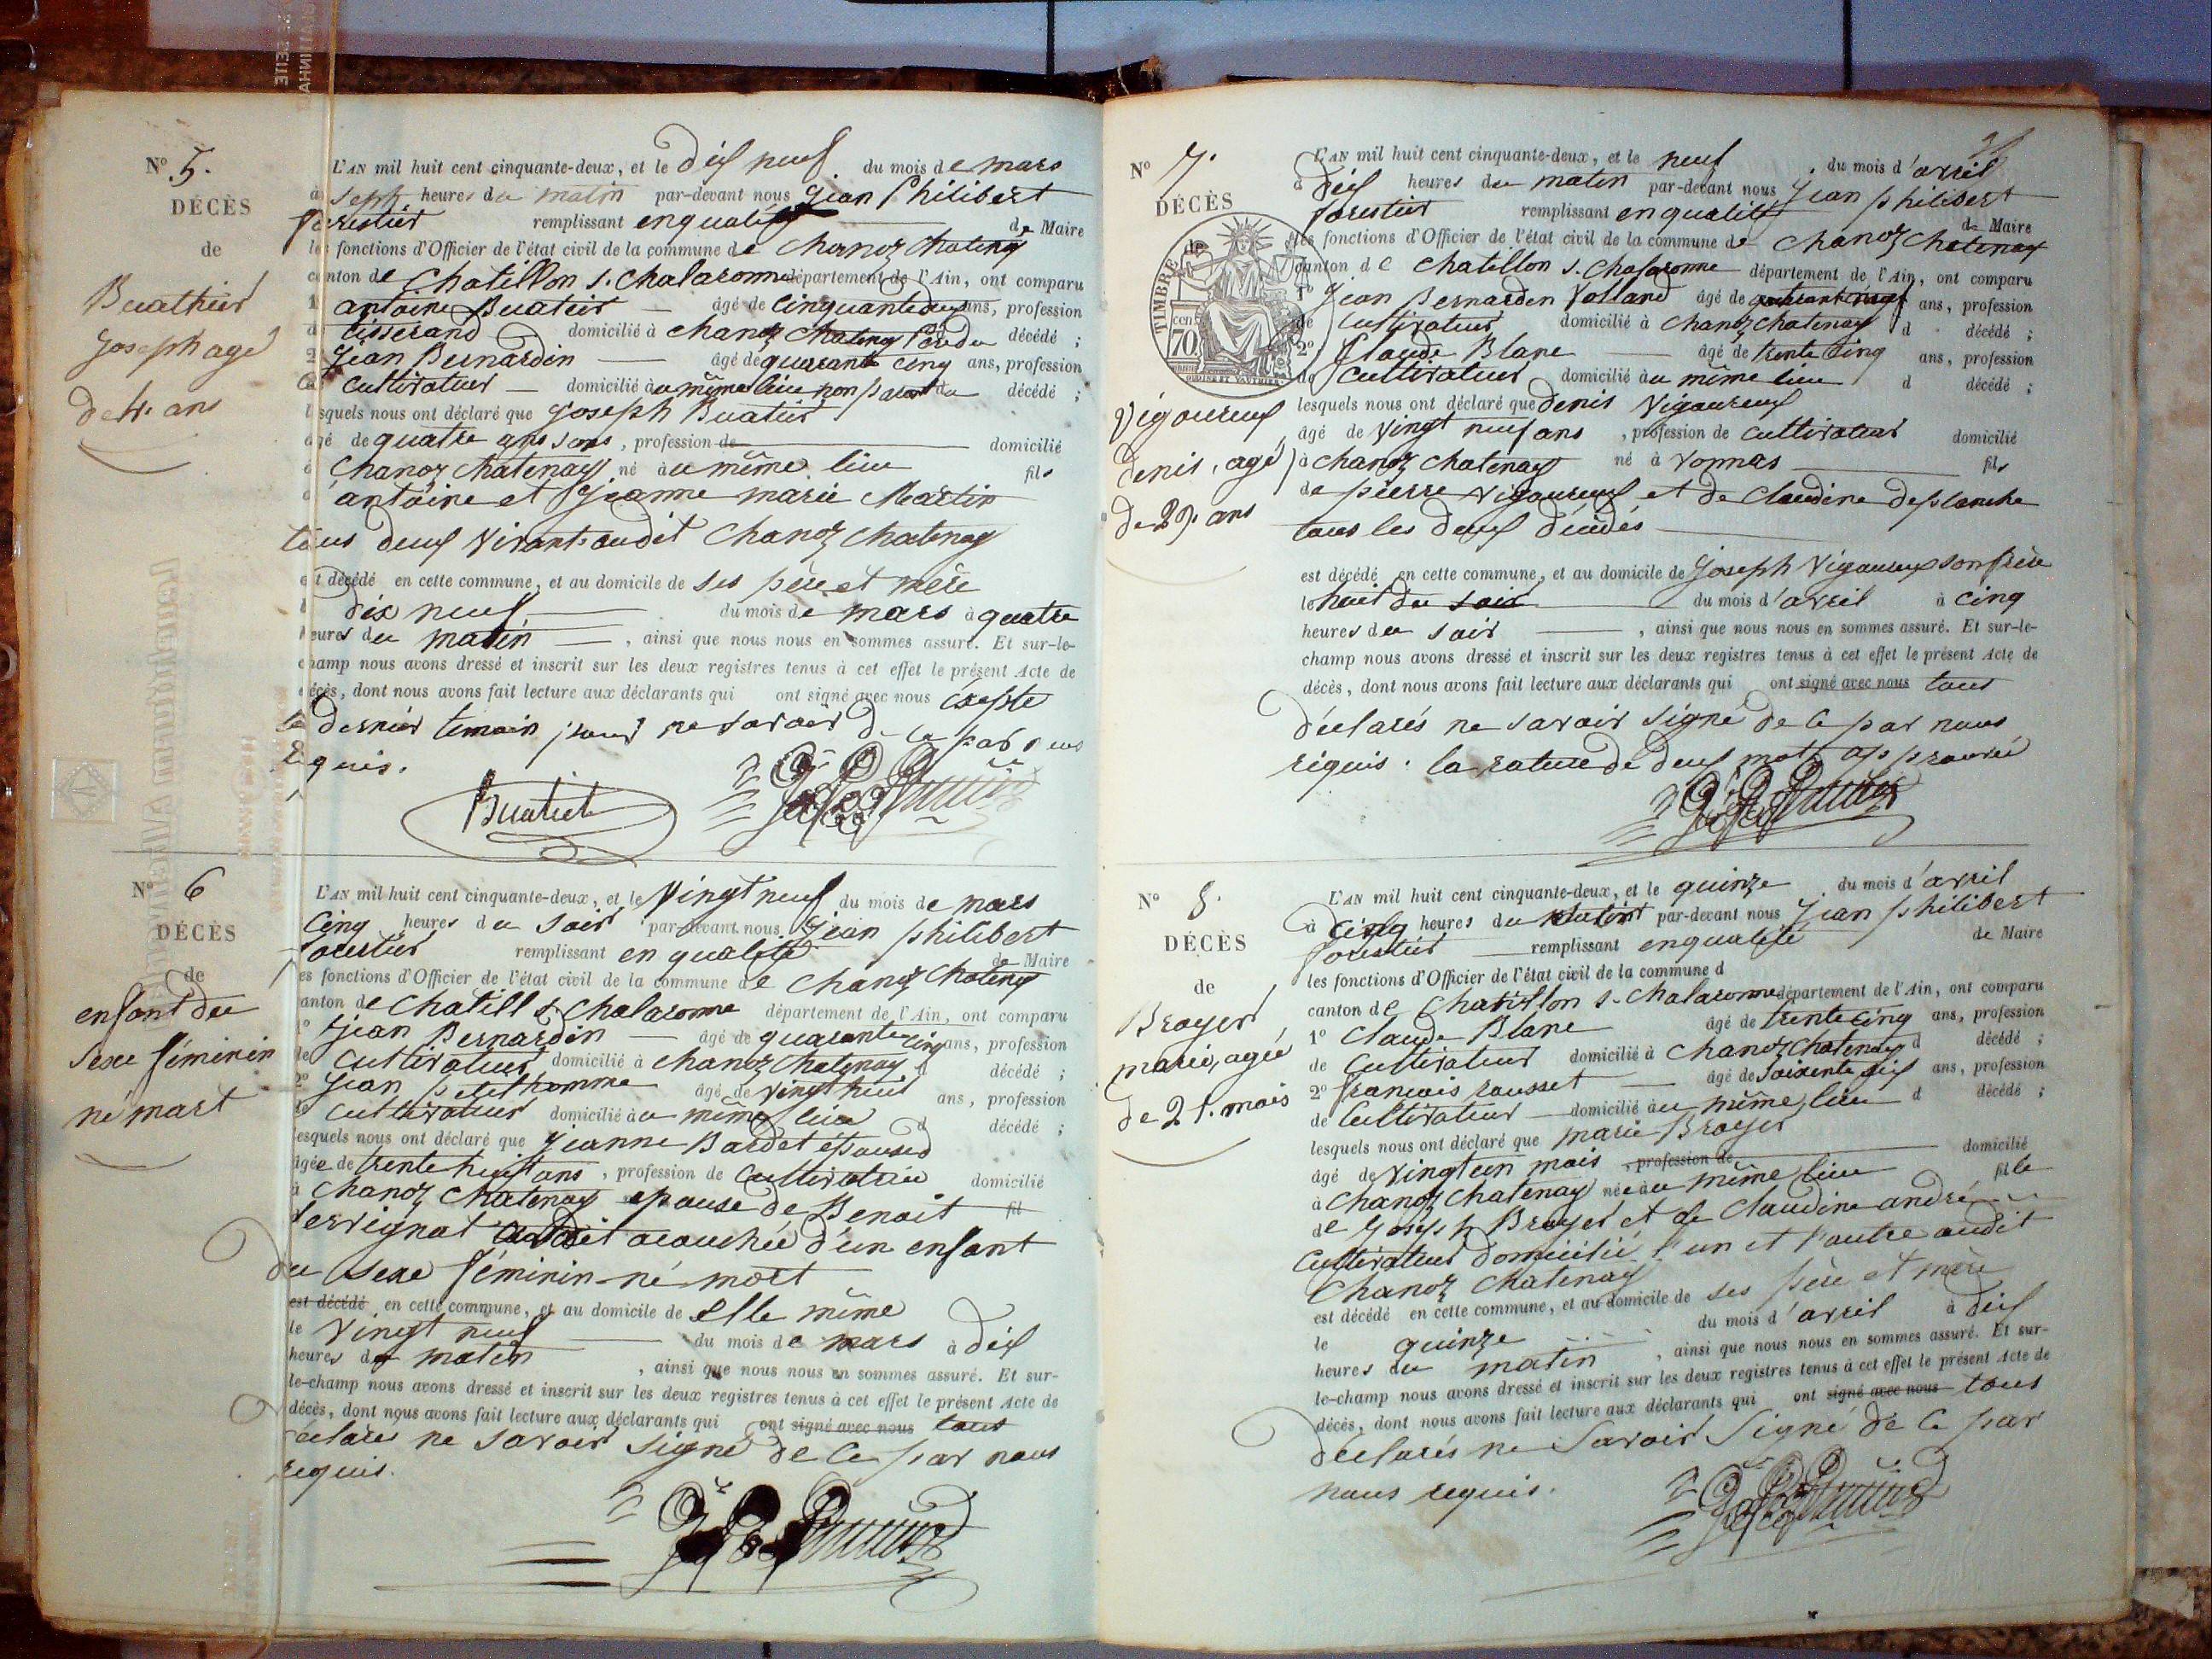 N° 5.
DÉCÈS
de
Buathier
Joseph agé
de 4. ans
L'AN mil huit cent cinquante-deux, et le dix neuf du mois de mars
à sept heures du matin par-devant nous Jean Philibert
forestier remplissant en qualité de Maire
les fonctions d'Officier de l'état civil de la commune de Chanoz Chatenay
canton de Chatillon s. Chalaronne département de l'Ain, ont comparu
1° antoine Buatier âgé de cinquante deux ans, profession
d tisserand domicilié à Chanoz Chatenay Père du décédé ;
2° Jean Bernardin âgé de quarante cinq ans, profession
de Cultivateur domicilié au même lieu non parent du décédé ;
lesquels nous ont déclaré que Joseph Buatier
âgé de quatre ans , profession de domicilié
à Chanoz Chatenay né au même lieu fils
d'antoine et Jeanne marie Martin
tous deux vivant audit Chanoz Chatenay
est décédé en cette commune, et au domicile de ses père et mère
le dix neuf du mois de mars à quatre
heures du matin , ainsi que nous nous en sommes assuré. Et sur-le-
champ nous avons dressé et inscrit sur les deux registres tenus à cet effet le présent Acte de
décès, dont nous avons fait lecture aux déclarants qui ont signé avec nous excepté
le dernier temoin pour ne savoir de ce par nous
requis.
Buatier
N° 6
DÉCÈS
de
enfant du
sexe féminin
né mort
L'AN mil huit cent cinquante-deux, et le vingt neuf du mois de mars
cinq heures du soir par-devant nous Jean philibert
forestier remplissant en qualité de Maire
les fonctions d'Officier de l'état civil de la commune de Chanoz Chatenay
canton de Chatill s. Chalaronne département de l'Ain, ont comparu
1° Jean Bernardin âgé de quarante cinq ans, profession
de Cultivateur domicilié à Chanoz Chatenay d décédé ;
2° Jean petithomme âgé de vingt huit ans, profession
de Cultivateur domicilié au même lieu d décédé ;
lesquels nous ont déclaré que Jeanne Bardet épouse
âgée de trente huit ans , profession de Cultivatrice domicilié
à Chanoz Chatenay epouse de Benoit fil
Perrignat acouchée d'un enfant
du sexe féminin né mort
est décédé en cette commune, et au domicile de elle même
le vingt neuf du mois de mars à dix
heures du matin , ainsi que nous nous en sommes assuré. Et sur-
le-champ nous avons dressé et inscrit sur les deux registres tenus à cet effet le présent Acte de
décès, dont nous avons fait lecture aux déclarants qui ont signé avec nous tous
déclarés ne savoir signé de ce par nous
requis.
N° 7.
DÉCÈS
de
TIMBRE
70
Vigoureux
denis, agé
de 29. ans
L'AN mil huit cent cinquante-deux, et le neuf du mois d'avril
à dix heures du matin par-devant nous Jean philibert
forestier remplissant en qualité de Maire
les fonctions d'Officier de l'état civil de la commune de Chanoz Chatenay
canton de Chatillon s. Chalaronne département de l'Ain, ont comparu
1° Jean Bernarden Volland âgé de ans, profession
de Cultivateur domicilié à Chanoz Chatenay d décédé ;
2° Claude Blanc âgé de trente cinq ans, profession
de Cultivateur domicilié au même lieu d décédé ;
lesquels nous ont déclaré que denis Vigoureux
âgé de vingt neuf ans , profession de Cultivateur domicilié
à Chanoz Chatenay né à Vonnas fils
de pierre Vigoureux et de Claudine deplanche
tous les deux décédés
est décédé en cette commune, et au domicile de Joseph Vigoureux son frère
le huit du soir du mois d'avril à cinq
heures du soir , ainsi que nous nous en sommes assuré. Et sur-le-
champ nous avons dressé et inscrit sur les deux registres tenus à cet effet le présent Acte de
décès, dont nous avons fait lecture aux déclarants qui ont signé avec nous tous
déclarés ne savoir signé de ce par nous
requis. la rature de deux mots approuvée
N° 8.
DÉCÈS
de
Broyer
marie, agée
de 21. mois
L'AN mil huit cent cinquante-deux, et le quinze du mois d'avril
à cinq heures du par-devant nous Jean philibert
forestier remplissant en qualité de Maire
les fonctions d'Officier de l'état civil de la commune d
canton de Chatillon s. Chalaronne département de l'Ain, ont comparu
1° Claude Blanc âgé de trente cinq ans, profession
de Cultivateur domicilié à Chanoz Chatenay d décédé ;
2° francois rousset âgé de soixante dix ans, profession
de Cultivateur domicilié au même lieu d décédé ;
lesquels nous ont déclaré que marie Broyer
âgé de vingt un mois , profession de domicilié
à Chanoz Chatenay née au même lieu fille
de Joseph Broyer et de Claudine andré
Cultivateur domicilié l'un et l'autre audit
Chanoz Chatenay
est décédé en cette commune, et au domicile de ses père et mère
le quinze du mois d'avril à dix
heures du matin , ainsi que nous nous en sommes assuré. Et sur-
le-champ nous avons dressé et inscrit sur les deux registres tenus à cet effet le présent Acte de
décès, dont nous avons fait lecture aux déclarants qui ont signé avec nous tous
déclarés ne savoir signé de ce par
nous requis.